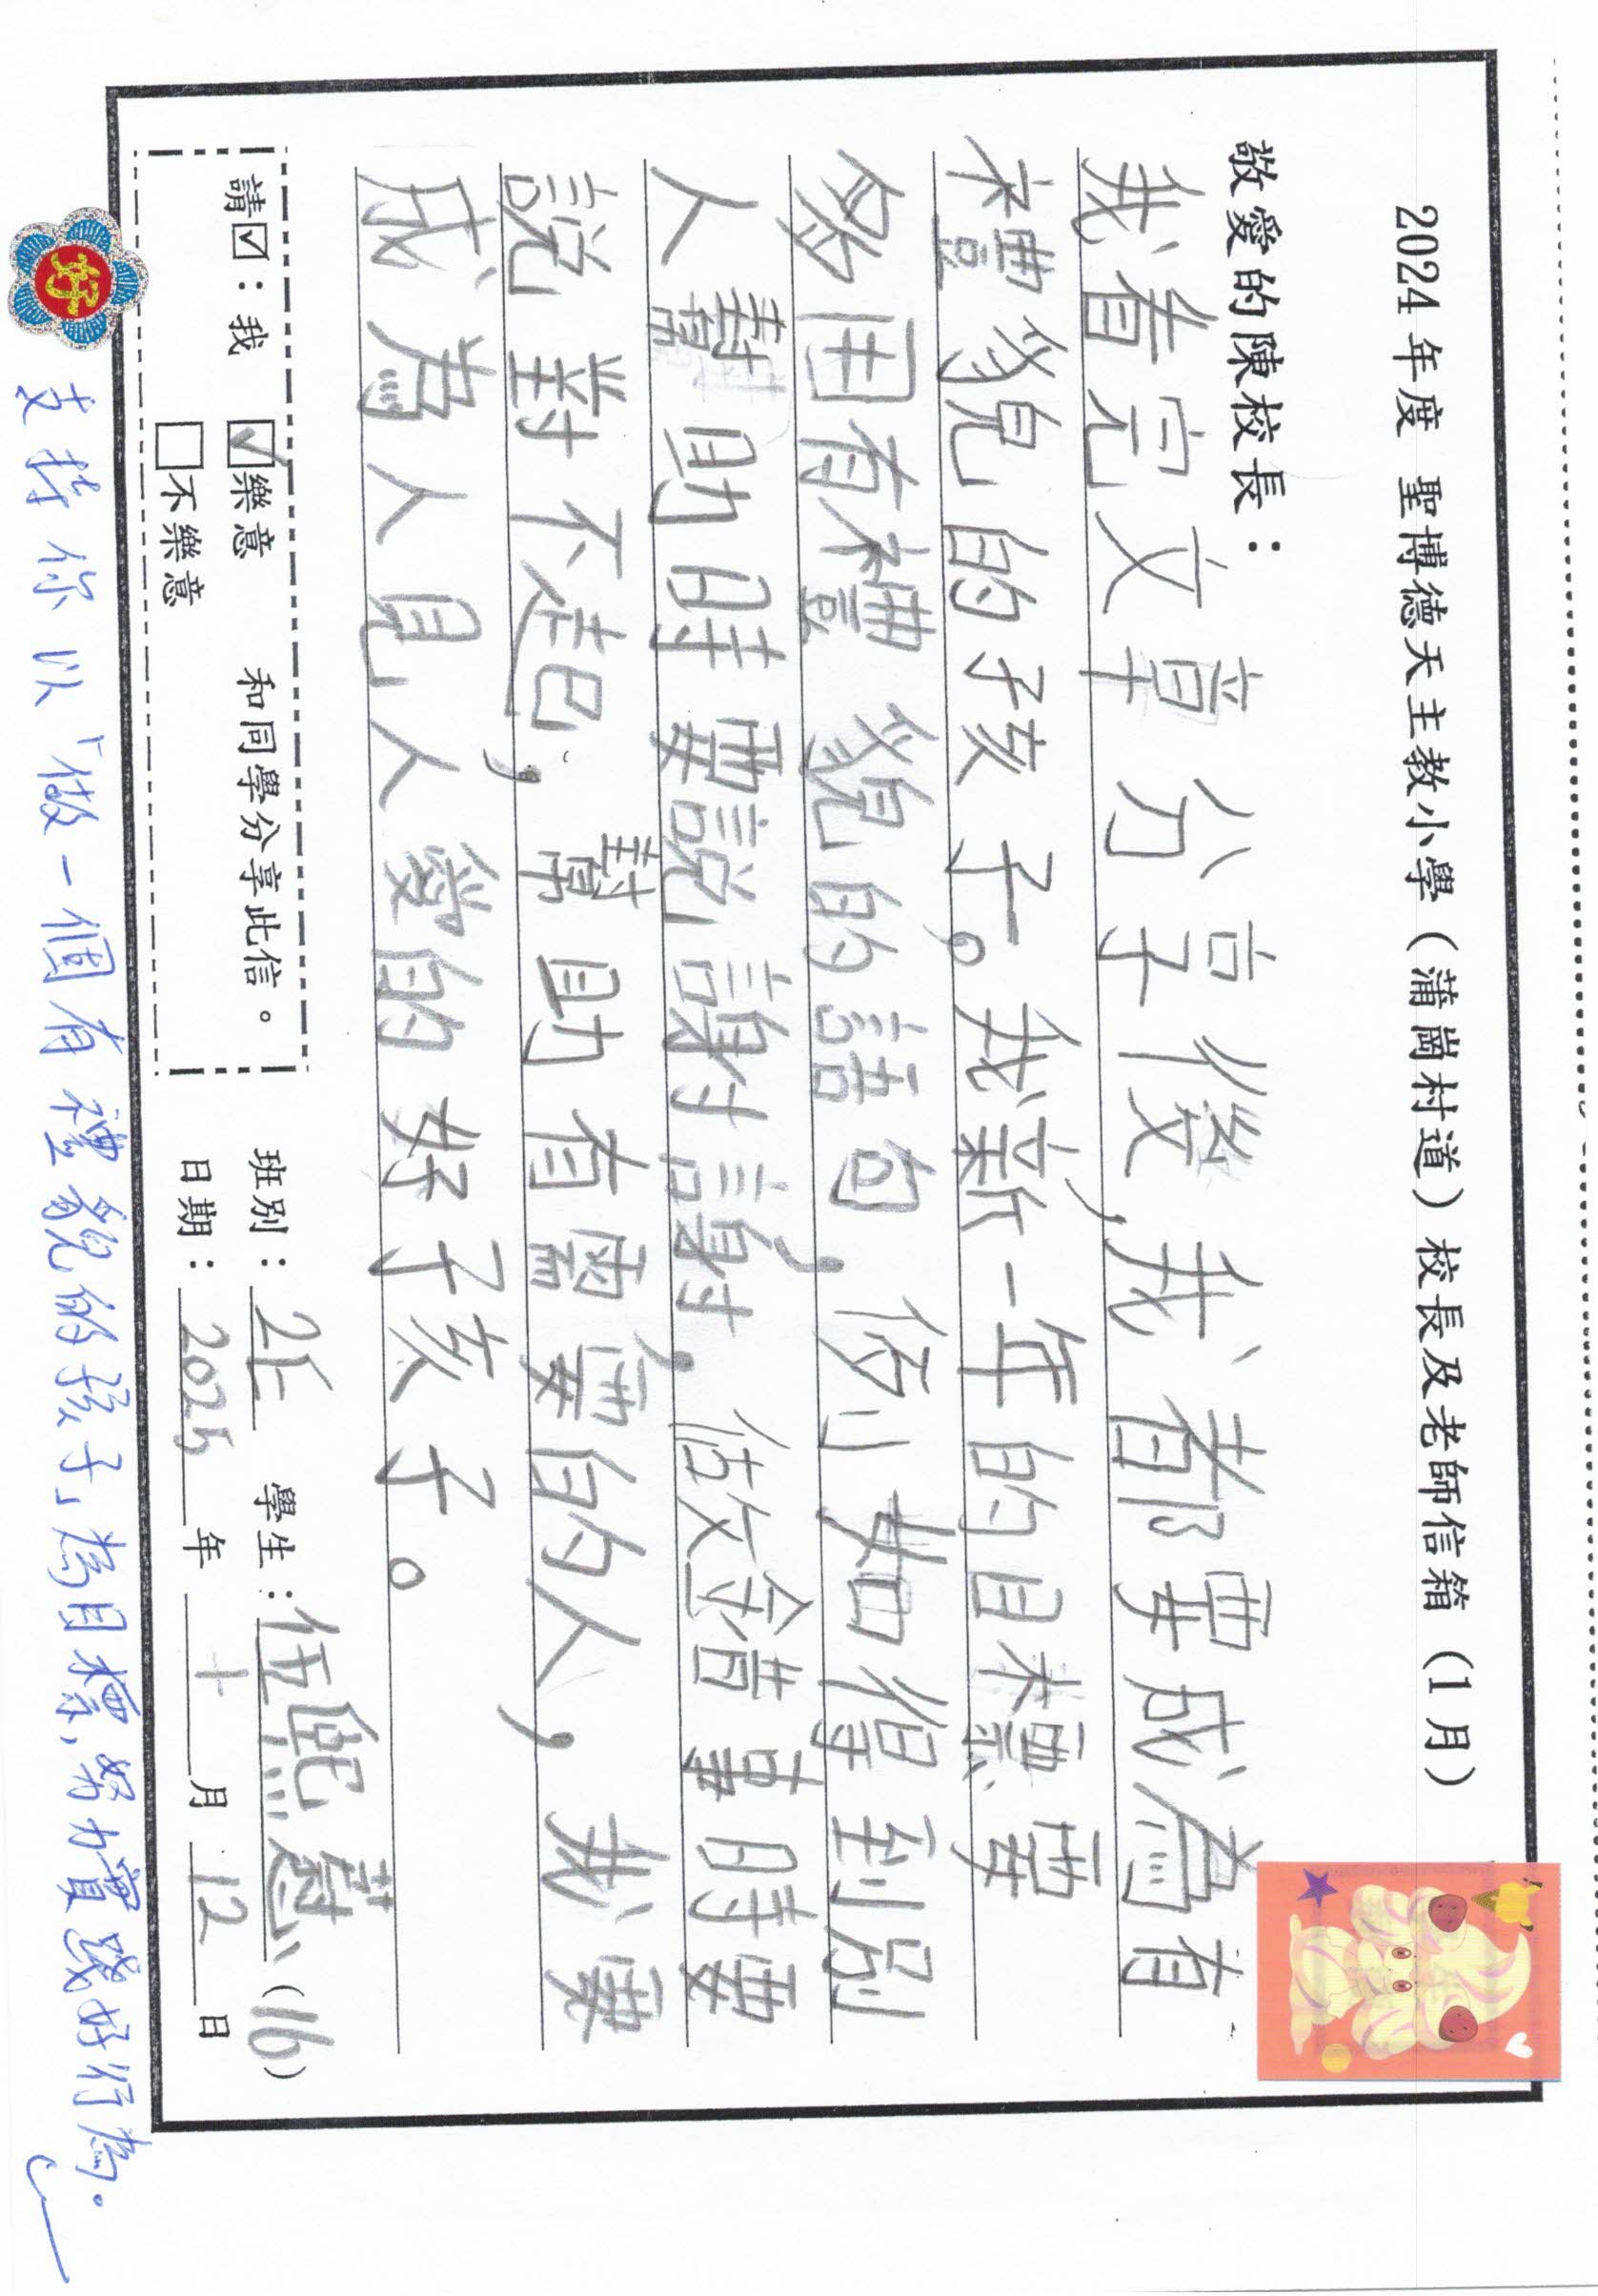 2024年度 聖博德天主教小學(蒲崗村道)校長及老師信箱(1月)
敬愛的陳校長：
我看完文章分享後,我都要成為有
禮貌的孩子。我新一年的目標要
多用有禮貌的語句,例如得到別
人幫助時要說謝謝,做錯事時要
說對不起,幫助有需要的人,我要
成為人見人愛的好孩子。
請☑：我 ☑樂意 和同學分享此信。
□不樂意
班別：2E 學生：伍熙慰(16)
日期：2025年十月12日
好
支持你以「做一個有禮貌的孩子」為目標,努力實踐好行為。